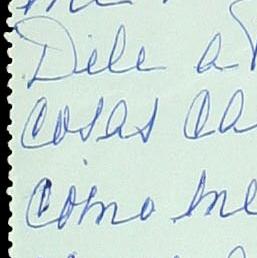 Dile a
cosas ca
como me